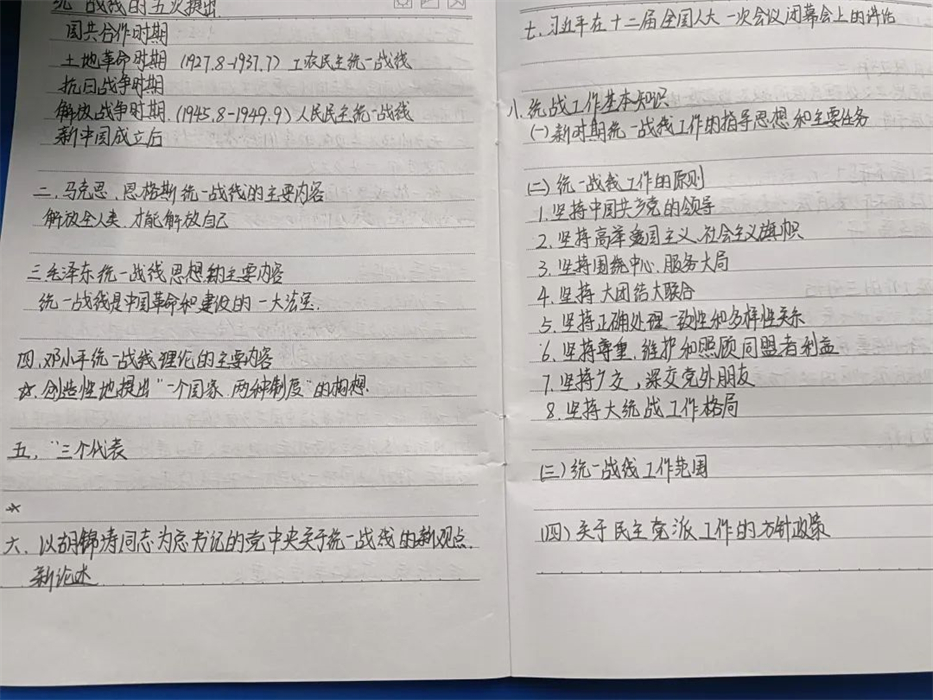 统一战线的五次提出
国共合作时期
土地革命时期（1927.8-1937.7）工农民主统一战线
抗日战争时期
解放战争时期（1945.8-1949.9）人民民主统一战线
新中国成立后
二、马克思、恩格斯统一战线的主要内容
解放全人类，才能解放自己
三、毛泽东统一战线思想的主要内容
统一战线是中国革命和建设的一大法宝.
四、邓小平统一战线理论的主要内容
☆.创造性地提出“一个国家、两种制度”的构想.
五、“三个代表
☆
六、以胡锦涛同志为总书记的党中央关于统一战线的新观点、
新论述
七、习近平在十二届全国人大一次会议闭幕会上的讲话
八、统战工作基本知识
(一)新时期统一战线工作的指导思想和主要任务
(二)统一战线工作的原则
1.坚持中国共产党的领导
2.坚持高举爱国主义、社会主义旗帜
3.坚持围绕中心、服务大局
4.坚持大团结大联合
5.坚持正确处理一致性和多样性关系
6.坚持尊重、维护和照顾同盟者利益
7.坚持广交，深交党外朋友
8.坚持大统战工作格局
(三)统一战线工作范围
(四)关于民主党派工作的方针政策